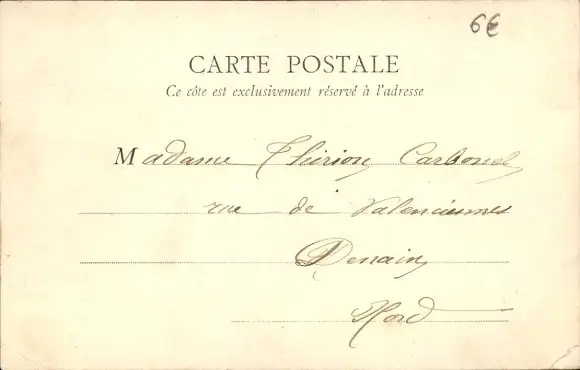 6€
CARTE POSTALE
Ce côte est exclusivement réservé à l'adresse
Madame Carbonel
rue de Valenciennes
Denain
Nord